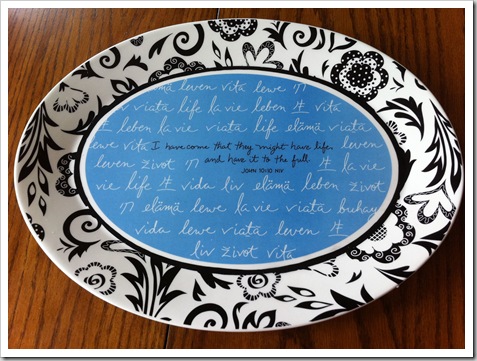 leven vita lewe חי
viata life la vie leben 生 vita
生 leben la vie viata life elämä vita
lewe vita I have come that they might have life, leven
leven život and have it to the full. 生 la vie
JOHN 10:10 NIV
vie life 生 vida liv elämä leben život
חי elämä lewe la vie viata buhay
vida lewe viata leven 生
liv život vita